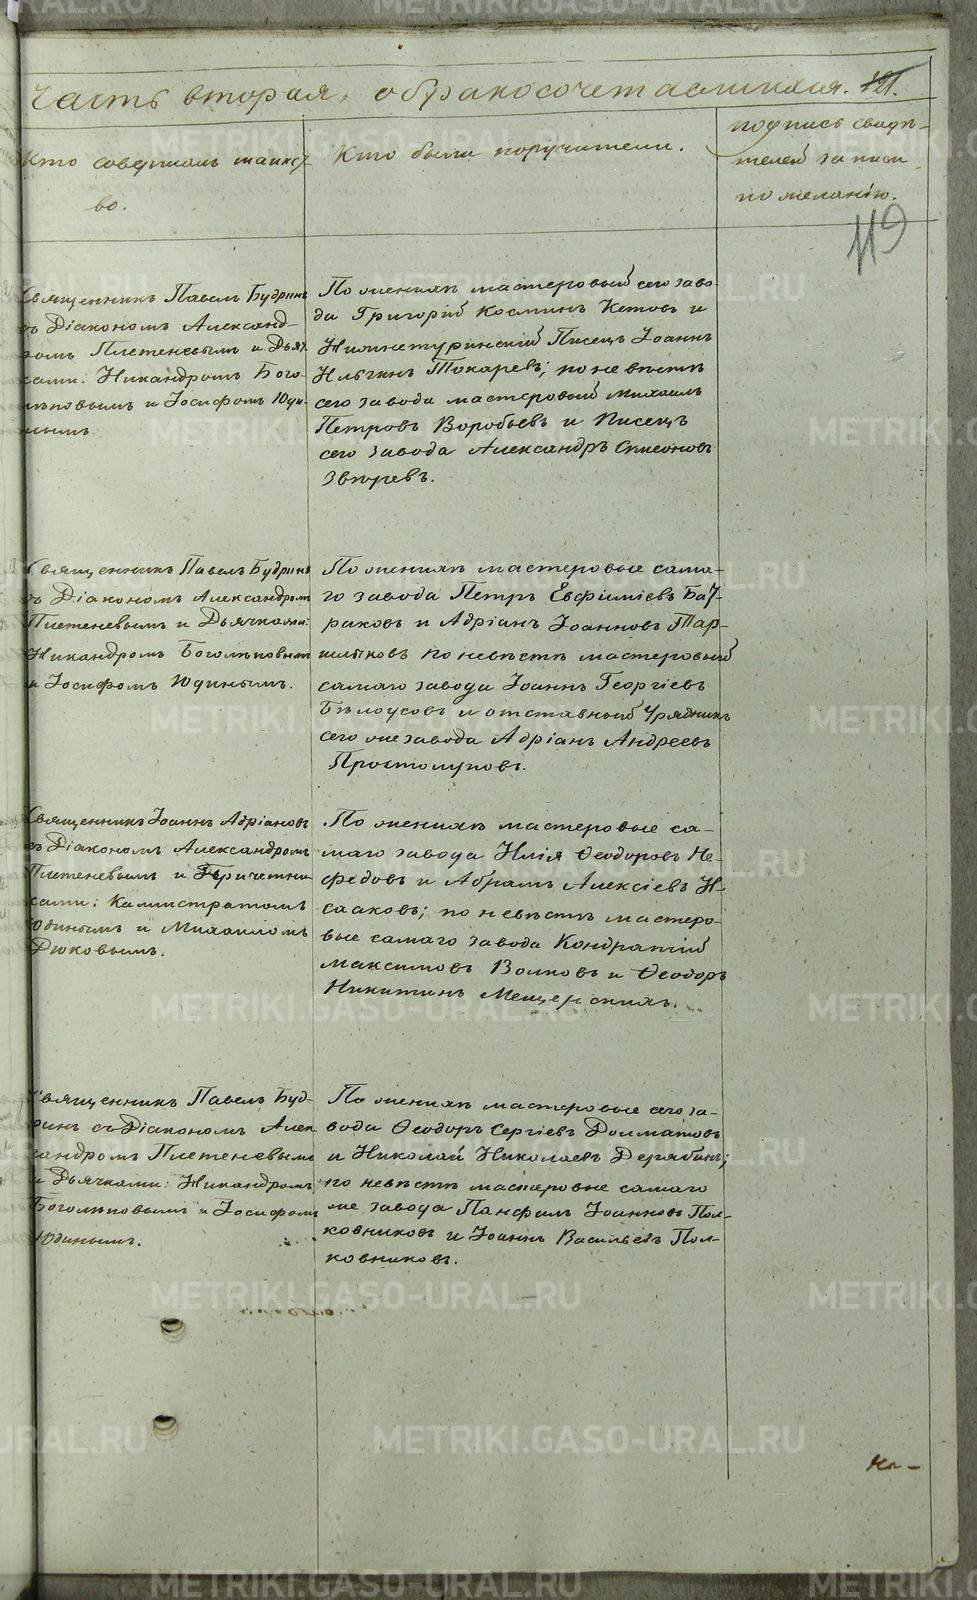 Часть вторая, о бракосочетавшихся. 121.
Кто совершалъ таинст-
во.
Кто были поручители.
подпись свидѣ-
телей записи
по желанію.
119
Священникъ Павелъ Будринъ
съ Діакономъ Александ-
ромъ Плетеневымъ и Дьяч
ками: Никандромъ Бого-
лѣповымъ и Іосифомъ Юди-
нымъ.
По женихѣ мастеровый сего заво-
да Григорій Косминъ Кетовъ и
Нижнетуринскій Писецъ Іоаннъ
Ильинъ Токаревъ; по невѣстѣ
сего завода мастеровый Михаилъ
Петровъ Воробьевъ и Писецъ
сего завода Александръ Симеоновъ
Звѣревъ.
Священникъ Павелъ Будринъ
съ Діакономъ Александромъ
Плетеневымъ и Дьячками:
Никандромъ Боголѣповымъ
и Іосифомъ Юдинымъ.
По женихѣ мастеровые сама-
го завода Петръ Евфиміевъ Бау-
раковъ и Адріанъ Іоанновъ Пар-
шуковъ по невѣстѣ мастеровый
самаго завода Іоаннъ Георгіевъ
Бѣлоусовъ и отставный Урядникъ
сего же завода Адріанъ Андреевъ
Простолуповъ.
Священникъ Іоаннъ Адріановъ
съ Діакономъ Александромъ
Плетеневымъ и Причетни-
ками: Каллистратомъ
Юдинымъ и Михаиломъ
Дюковымъ.
По женихѣ мастеровые са-
маго завода Илія Ѳеодоровъ Не-
федовъ и Абрамъ Алексіевъ И-
сааковъ; по невѣстѣ мастеро-
вые самаго завода Кондратій
Максимовъ Волковъ и Ѳеодоръ
Никитинъ Мещерскихъ.
Священникъ Павелъ Буд-
ринъ съ Діакономъ Алек-
сандромъ Плетеневымъ
и Дьячками: Никандромъ
Боголѣповымъ и Іосифомъ
Юдинымъ.
По женихѣ мастеровые сего за-
вода Ѳеодоръ Сергіевъ Долматовъ
и Николай Николаевъ Дерябинъ;
по невѣстѣ мастеровые самаго
же завода Панфилъ Іоанновъ Пол-
ковниковъ и Іоаннъ Васильевъ Пол-
ковниковъ.
METRIKI.GASO-URAL.RU